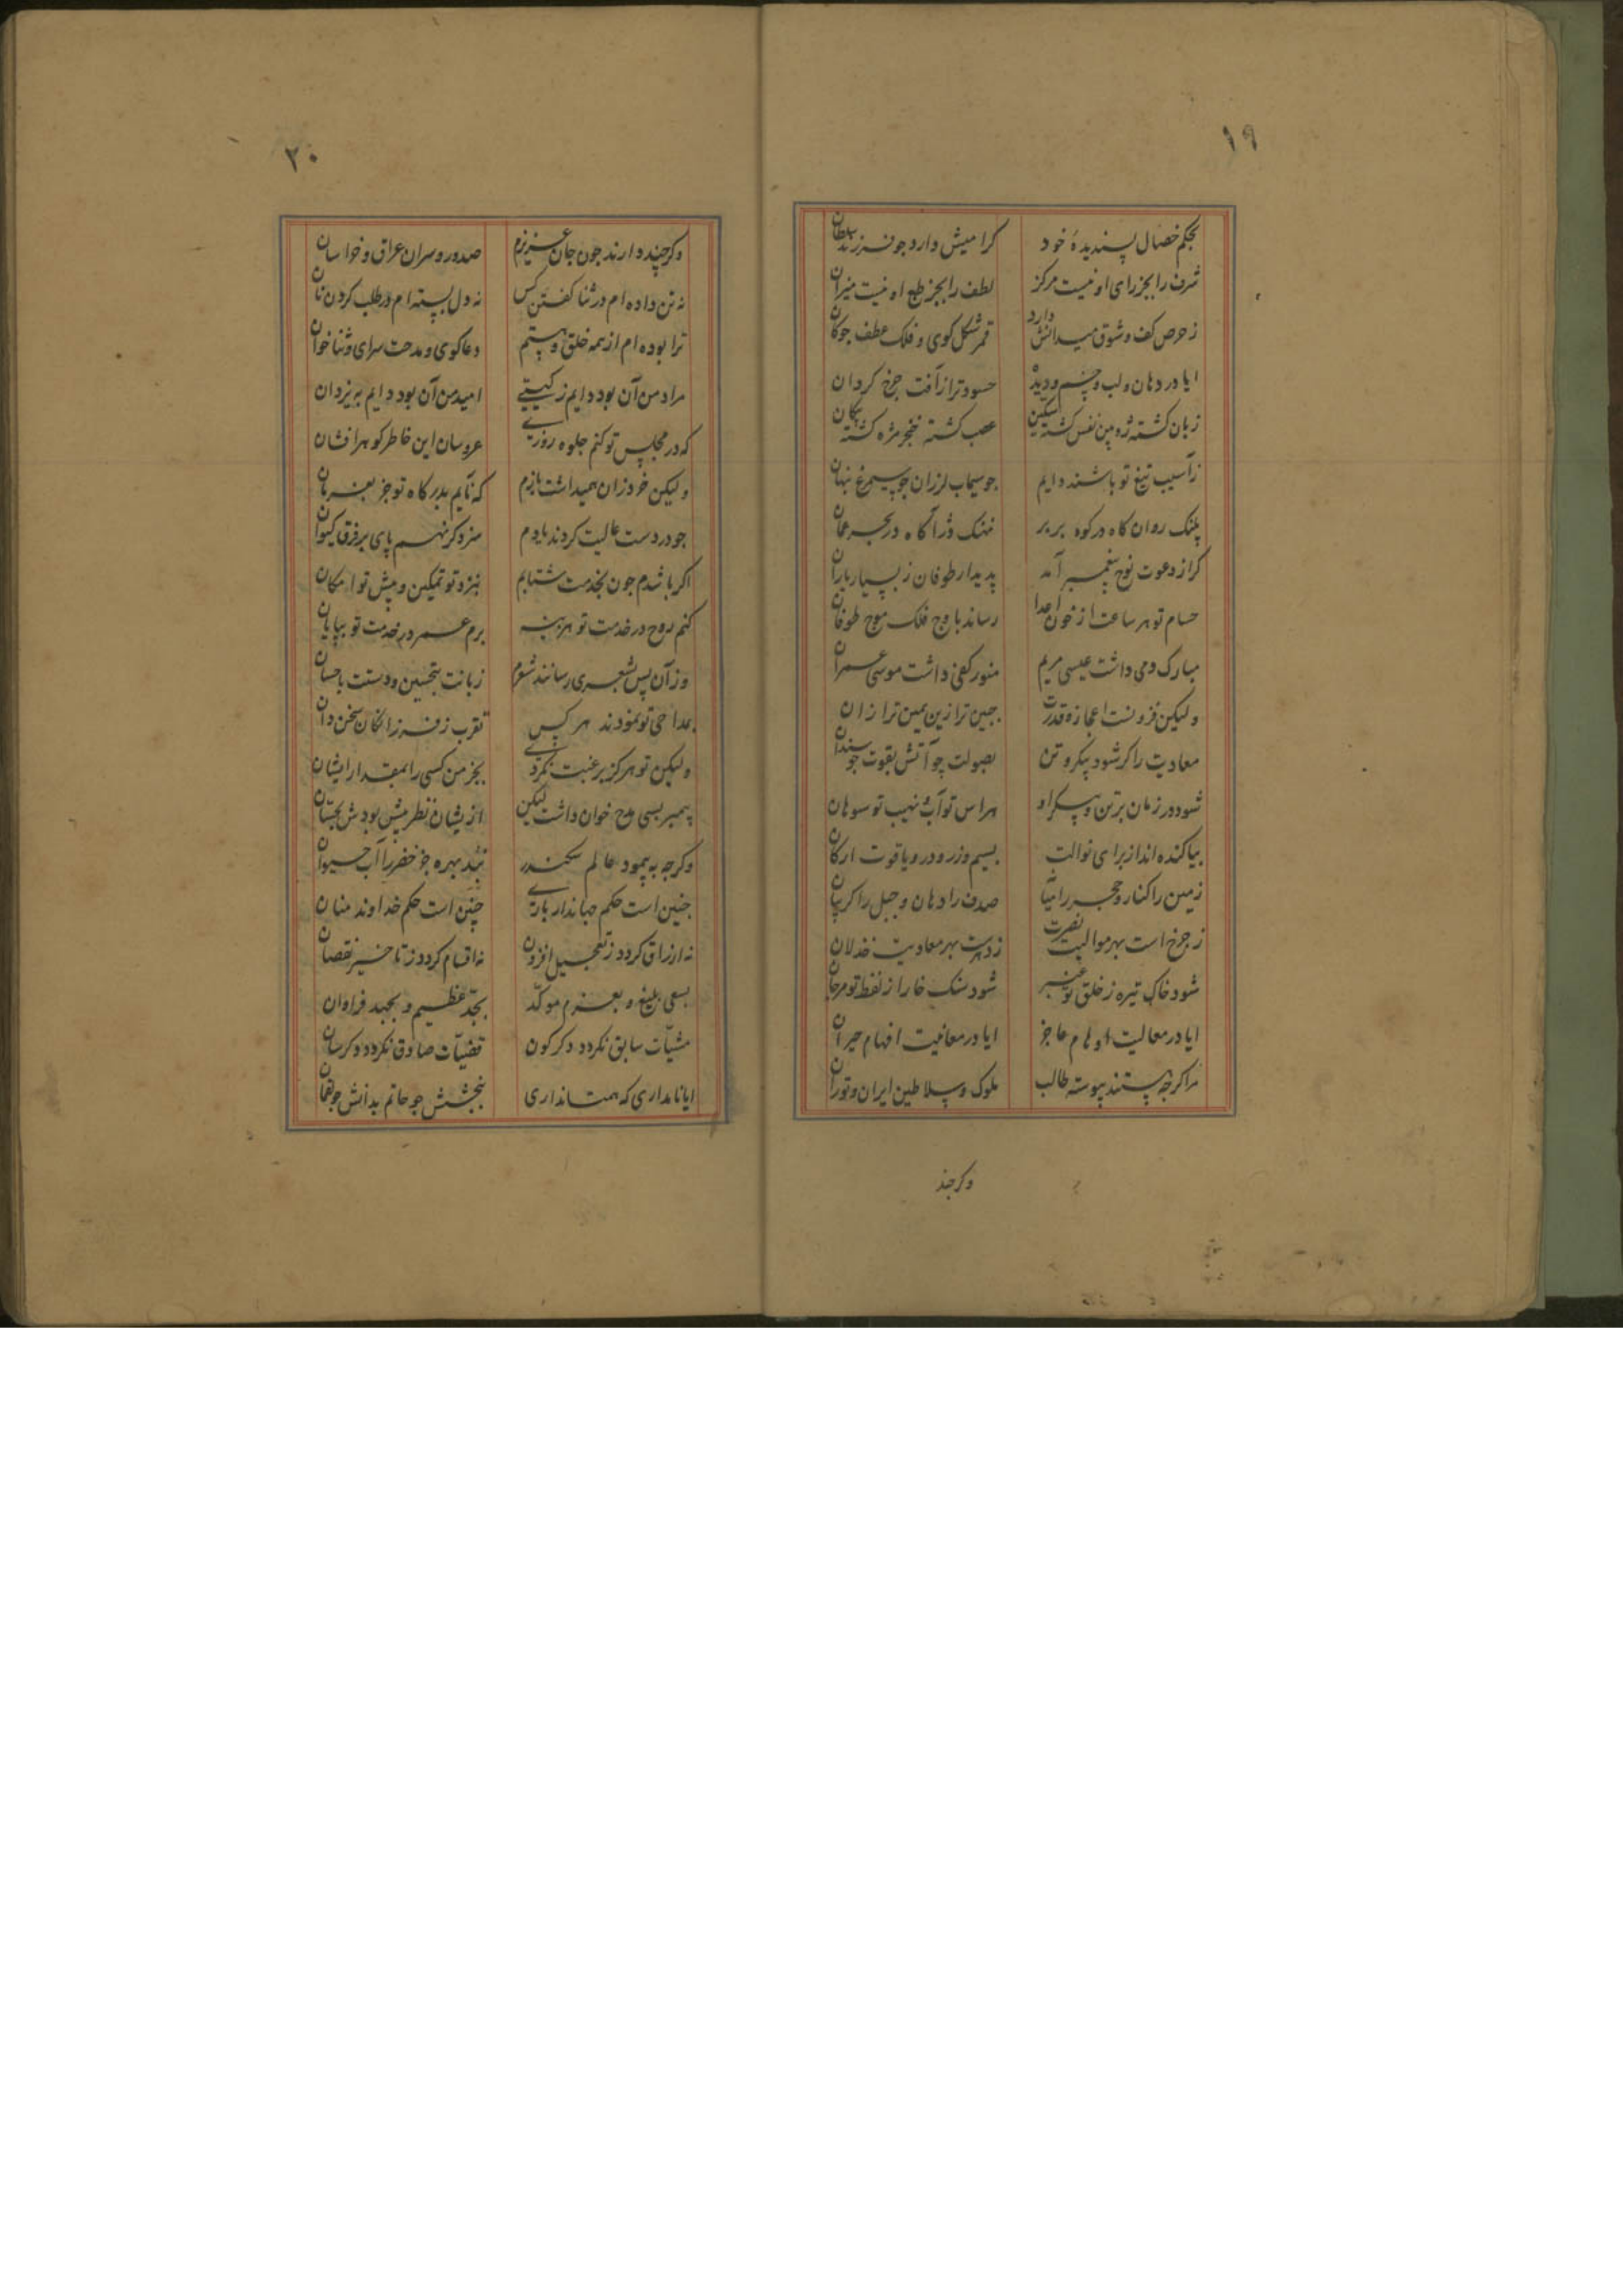 ۱۹
بحکم خصال پسندیدهٔ خود کرامیش دارد جو فرزند سلطان
شرف را بجز رای او نیست مرکز لطف را بجز طبع او نیست میزان
ز حرص کف و شوق میدانش دارد قمر شکل کوی و فلک عطف جوکان
ایا در دهان و لب و چشم و دیده حسود ترا از آفت جرخ کردان
زبان کشته ژوپین نفس کشته سکین عصب کشته خنجر مژه کشته پیکان
ز آسیب تیغ تو باشند دایم جو سیماب لرزان جو سیمرغ نهان
پلنک روان کاه در کوه بربر نهنک دژ آکاه در بحر عمان
کر از دعوت نوح پیغمبر آمد پدیدار طوفان ز بسیار باران
حسام تو هر ساعت از خون اعدا رساند باوج فلک موج طوفان
مبارک دمی داشت عیسی مریم منور کفی داشت موسی عمران
ولیکن فزونست اعجاز و قدرت جبین ترا زین یمین ترا زان
معادیت را کر شود پیکر و تن بصولت چو آتش بقوت جو سندان
شود در زمان بر تن و پیکر او هراس تو آب و نهیب تو سوهان
بیاکنده اند از برای نوالت بسیم و زر و در و یاقوت ارکان
زمین را کنار و حجر را میان صدف را دهان و جبل را کریبان
ز جرخ است بهر موالیت نصرت ز دهرست بهر معادیت خذلان
شود خاک تیره ز خلق تو عنبر شود سنک خارا ز لفظ تو مرجان
ایا در معالیت اوهام عاجز ایا در معانیت افهام حیران
مرا کرچه هستند پیوسته طالب ملوک و سلاطین ایران و توران
وکرجند
۲۰
وکرچند دارند جون جان عزیزم صدور و سران عراق و خراسان
نه تن داده ام در ثنا کفتن کس نه دل بسته ام در طلب کردن نان
ترا بوده ام از همه خلق و هستم دعاکوی و مدحت سرای و ثناخوان
مراد من آن بود دایم ز کیتی امید من آن بود دایم به یزدان
که در مجلس تو کنم جلوه روزی عروسان این خاطر کوهر افشان
ولیکن خرد زان همیداشت بازم که نآیم بدرکاه تو جز بفرمان
جو در دست عالیت کردند یادم سزد کر نهم پای بر فرق کیوان
اکر باشدم جون بخدمت شتابم بنزد تو تمکین و پیش تو امکان
کنم روح در خدمت تو هزینه برم عمر در خدمت تو بپایان
وز آن پس بشعری رسانند شعرم زبانت بتحسین و دستت باحسان
بمداحی تو نمودند هر کس تقرب ز فرزانکان سخن دان
ولیکن تو هرکز برغبت نکردی بجز من کسی را بمقدار ایشان
پیمبر بسی مدح خوان داشت لیکن ازیشان نظر بیش بودش بحسان
وکرجه به پیمود عالم سکندر نبد بهره جز خضر را آب حیوان
جنین است حکم جهاندار باری چنین است حکم خداوند منان
نه ارزاق کردد ز تعجیل افزون نه اقسام کردد ز تاخیر نقصان
بسعی بلیغ و بعزم موکد بجد عظیم و بجهد فراوان
مشیّات سابق نکردد دکرکون قضیّات صادق نکردد دکرسان
ایا نامداری که همتا نداری ببخشش چو حاتم بدانش جو لقمان